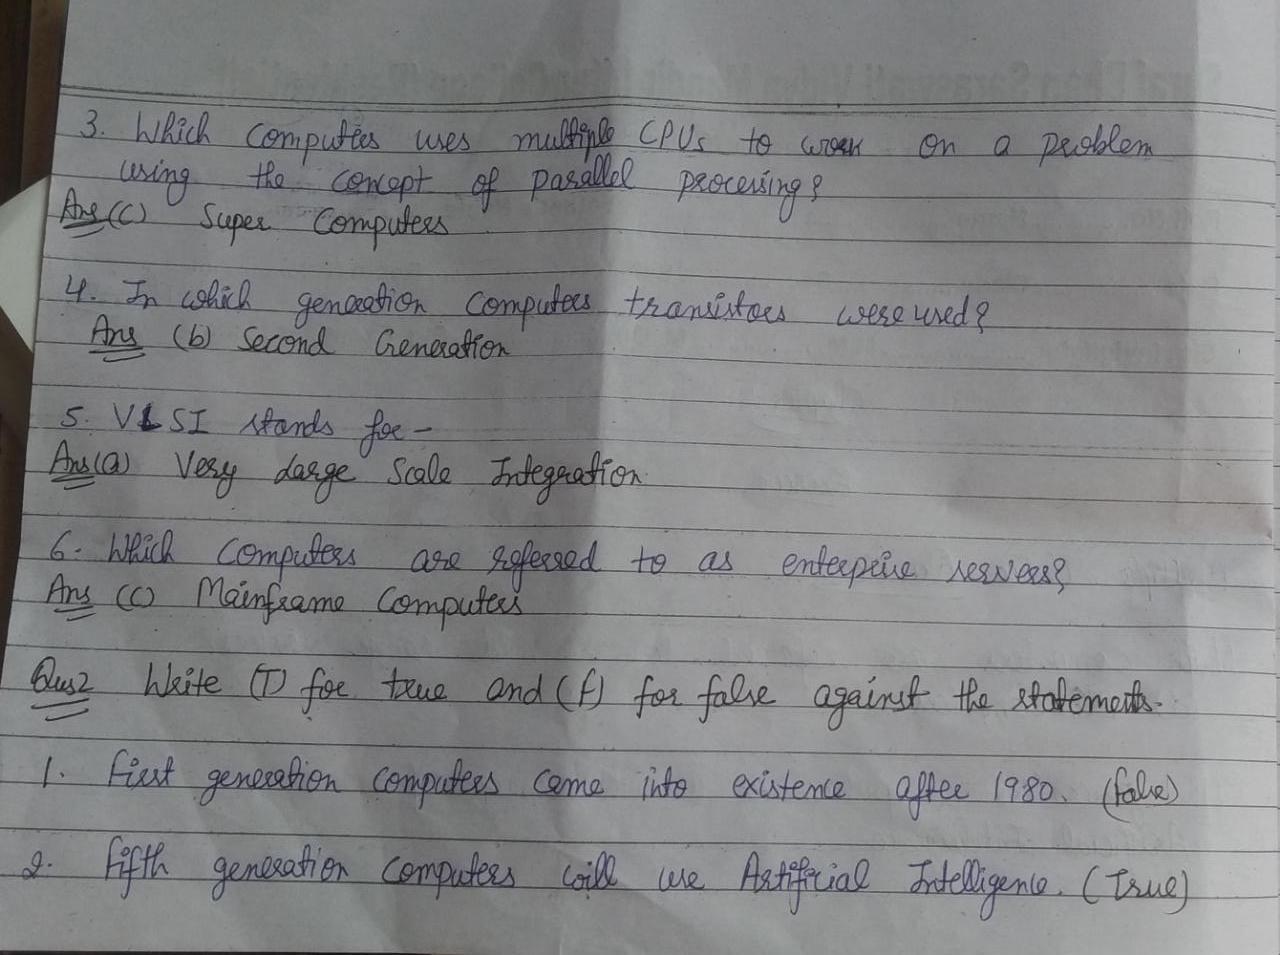 3. Which Computers uses multiple CPUs to work on a problem
using the concept of parallel processing?
Ans (C) Super Computers
4. In which generation Computers transistors were used?
Ans (b) Second Generation
5. VLSI stands for -
Ans (a) Very Large Scale Integration
6. Which Computers are referred to as enterprise servers?
Ans (C) Mainframe Computers
Qus2 Write (T) for true and (f) for false against the statements.
1. First generation computers came into existence after 1980. (false)
2. Fifth generation Computers will use Artificial Intelligence. (True)